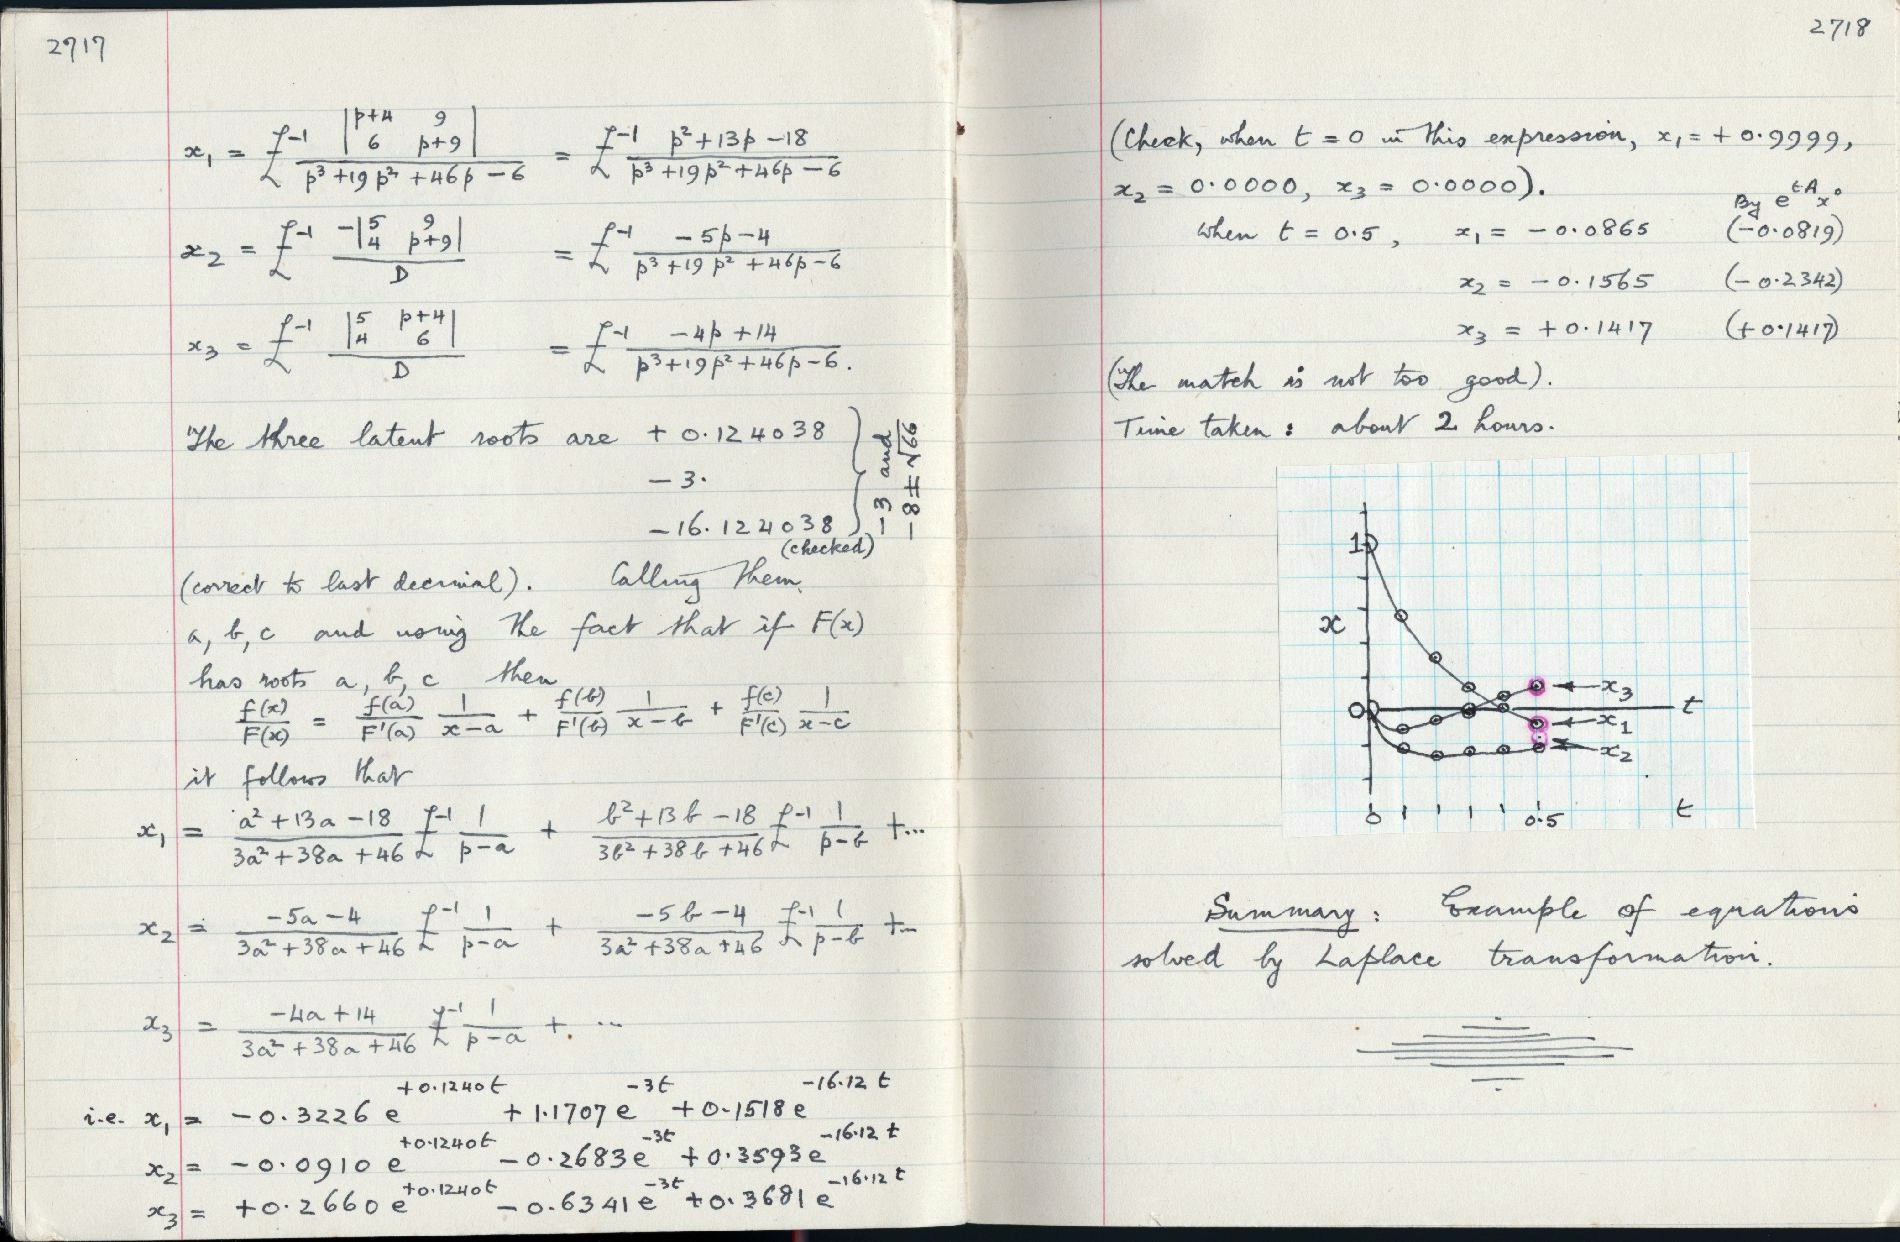 2717
x₁ = ℒ⁻¹ |p+4 9 / 6 p+9| / (p³+19p²+46p−6) = ℒ⁻¹ (p²+13p−18) / (p³+19p²+46p−6)
x₂ = ℒ⁻¹ −|5 9 / 4 p+9| / D = ℒ⁻¹ (−5p−4) / (p³+19p²+46p−6)
x₃ = ℒ⁻¹ |5 p+4 / 4 6| / D = ℒ⁻¹ (−4p+14) / (p³+19p²+46p−6).
The three latent roots are +0.124038
−3.
−16.124038
(checked)
−3 and
−8±√66
(correct to last decimal). Calling them
a, b, c and using the fact that if F(x)
has roots a, b, c then
f(x)/F(x) = f(a)/F'(a) 1/(x−a) + f(b)/F'(b) 1/(x−b) + f(c)/F'(c) 1/(x−c)
it follows that
x₁ = (a²+13a−18)/(3a²+38a+46) ℒ⁻¹ 1/(p−a) + (b²+13b−18)/(3b²+38b+46) ℒ⁻¹ 1/(p−b) +...
x₂ = (−5a−4)/(3a²+38a+46) ℒ⁻¹ 1/(p−a) + (−5b−4)/(3a²+38a+46) ℒ⁻¹ 1/(p−b) +...
x₃ = (−4a+14)/(3a²+38a+46) ℒ⁻¹ 1/(p−a) + ...
i.e. x₁ = −0.3226 e^(+0.1240t) +1.1707 e^(−3t) +0.1518 e^(−16.12t)
x₂ = −0.0910 e^(+0.1240t) −0.2683 e^(−3t) +0.3593 e^(−16.12t)
x₃ = +0.2660 e^(+0.1240t) −0.6341 e^(−3t) +0.3681 e^(−16.12t)
2718
(Check, when t = 0 in this expression, x₁ = +0.9999,
x₂ = 0.0000, x₃ = 0.0000).
By e^(tA) x°
When t = 0.5, x₁ = −0.0865 (−0.0819)
x₂ = −0.1565 (−0.2342)
x₃ = +0.1417 (+0.1417)
(The match is not too good).
Time taken: about 2 hours.
1
x
x₃
0
t
x₁
x₂
0 0.5 t
Summary: Example of equations
solved by Laplace transformation.